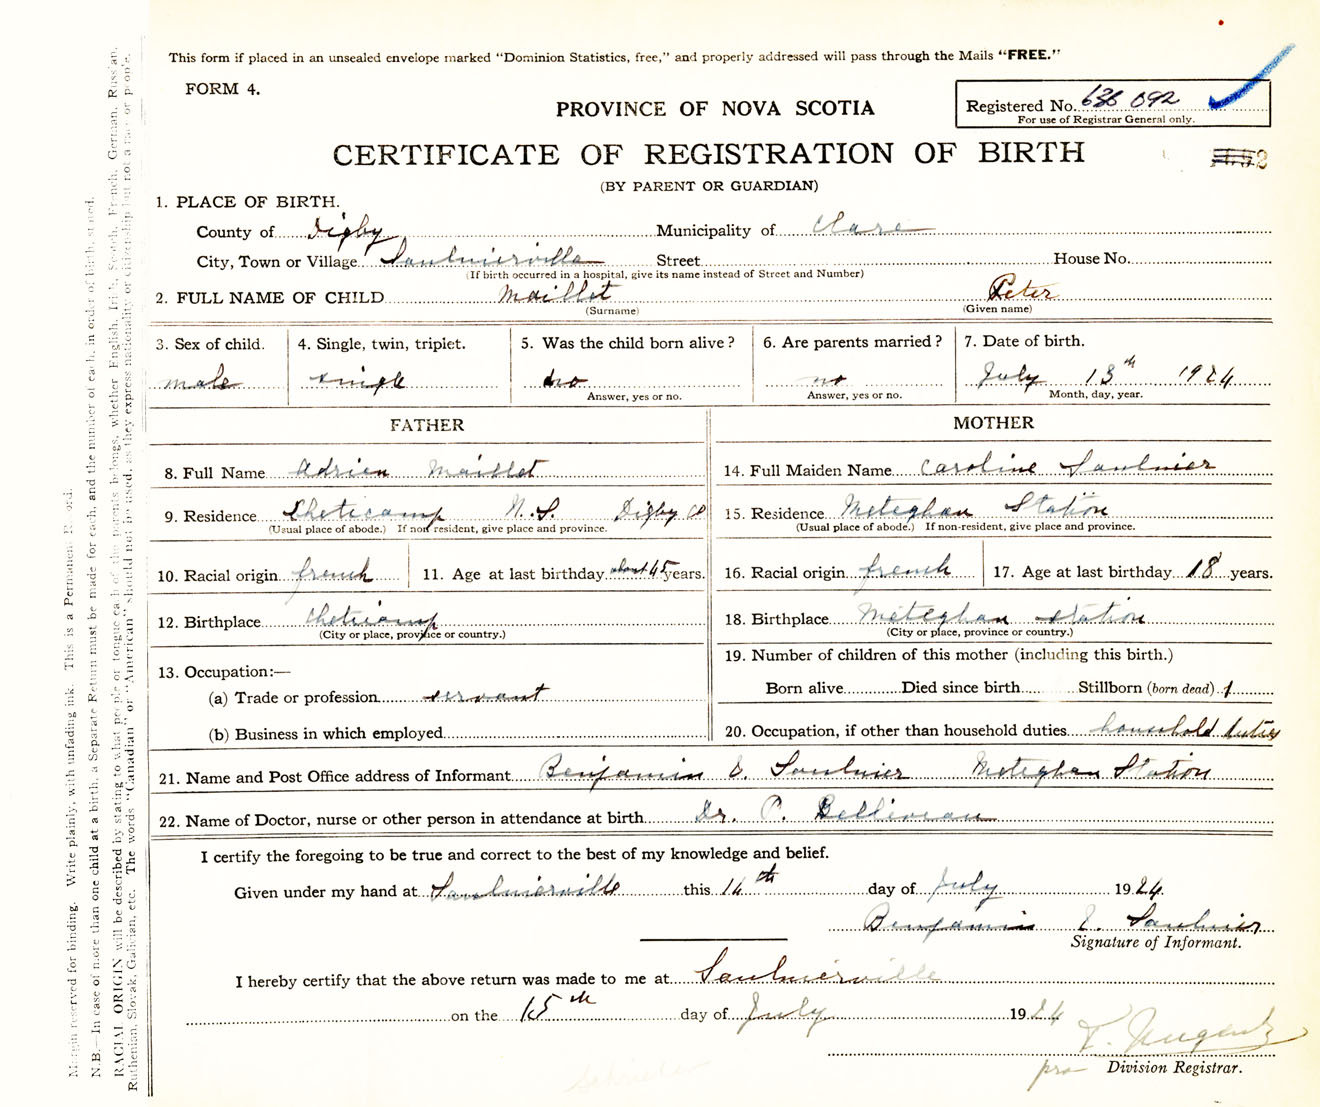 This form if placed in an unsealed envelope marked "Dominion Statistics, free," and properly addressed will pass through the Mails "FREE."
FORM 4.
PROVINCE OF NOVA SCOTIA
Registered No. 636 092
For use of Registrar General only.
CERTIFICATE OF REGISTRATION OF BIRTH
(BY PARENT OR GUARDIAN)
1. PLACE OF BIRTH.
County of Digby Municipality of Clare
City, Town or Village Saulnierville Street House No.
(If birth occurred in a hospital, give its name instead of Street and Number)
2. FULL NAME OF CHILD Maillet Peter
(Surname) (Given name)
3. Sex of child. 4. Single, twin, triplet. 5. Was the child born alive? 6. Are parents married? 7. Date of birth.
male single no no July 13th 1924
Answer, yes or no. Answer, yes or no. Month, day, year.
FATHER MOTHER
8. Full Name Adrien Maillet 14. Full Maiden Name Caroline Saulnier
9. Residence Cheticamp N.S. Digby Co 15. Residence Meteghan Station
(Usual place of abode.) If non resident, give place and province. (Usual place of abode.) If non-resident, give place and province.
10. Racial origin french 11. Age at last birthday about 45 years. 16. Racial origin french 17. Age at last birthday 18 years.
12. Birthplace Cheticamp 18. Birthplace Meteghan Station
(City or place, province or country.) (City or place, province or country.)
13. Occupation:— 19. Number of children of this mother (including this birth.)
(a) Trade or profession servant Born alive Died since birth Stillborn (born dead) 1
(b) Business in which employed 20. Occupation, if other than household duties household duties
21. Name and Post Office address of Informant Benjamin E. Saulnier Meteghan Station
22. Name of Doctor, nurse or other person in attendance at birth Dr. P. Belliveau
I certify the foregoing to be true and correct to the best of my knowledge and belief.
Given under my hand at Saulnierville this 14th day of July 1924.
Benjamin E. Saulnier
Signature of Informant.
I hereby certify that the above return was made to me at Saulnierville
on the 15th day of July 1924
Nugent
pro Division Registrar.
Margin reserved for binding. Write plainly, with unfading ink. This is a Permanent Record.
N.B.—In case of more than one child at a birth, a Separate Return must be made for each, and the number of each, in order of birth, stated.
RACIAL ORIGIN will be described by stating to what people or tongue each of the parents belongs, whether English, Irish, Scotch, French, German, Russian,
Ruthenian, Slovak, Galician, etc. The words "Canadian" or "American" should not be used, as they express nationality or citizenship but not a race or people.